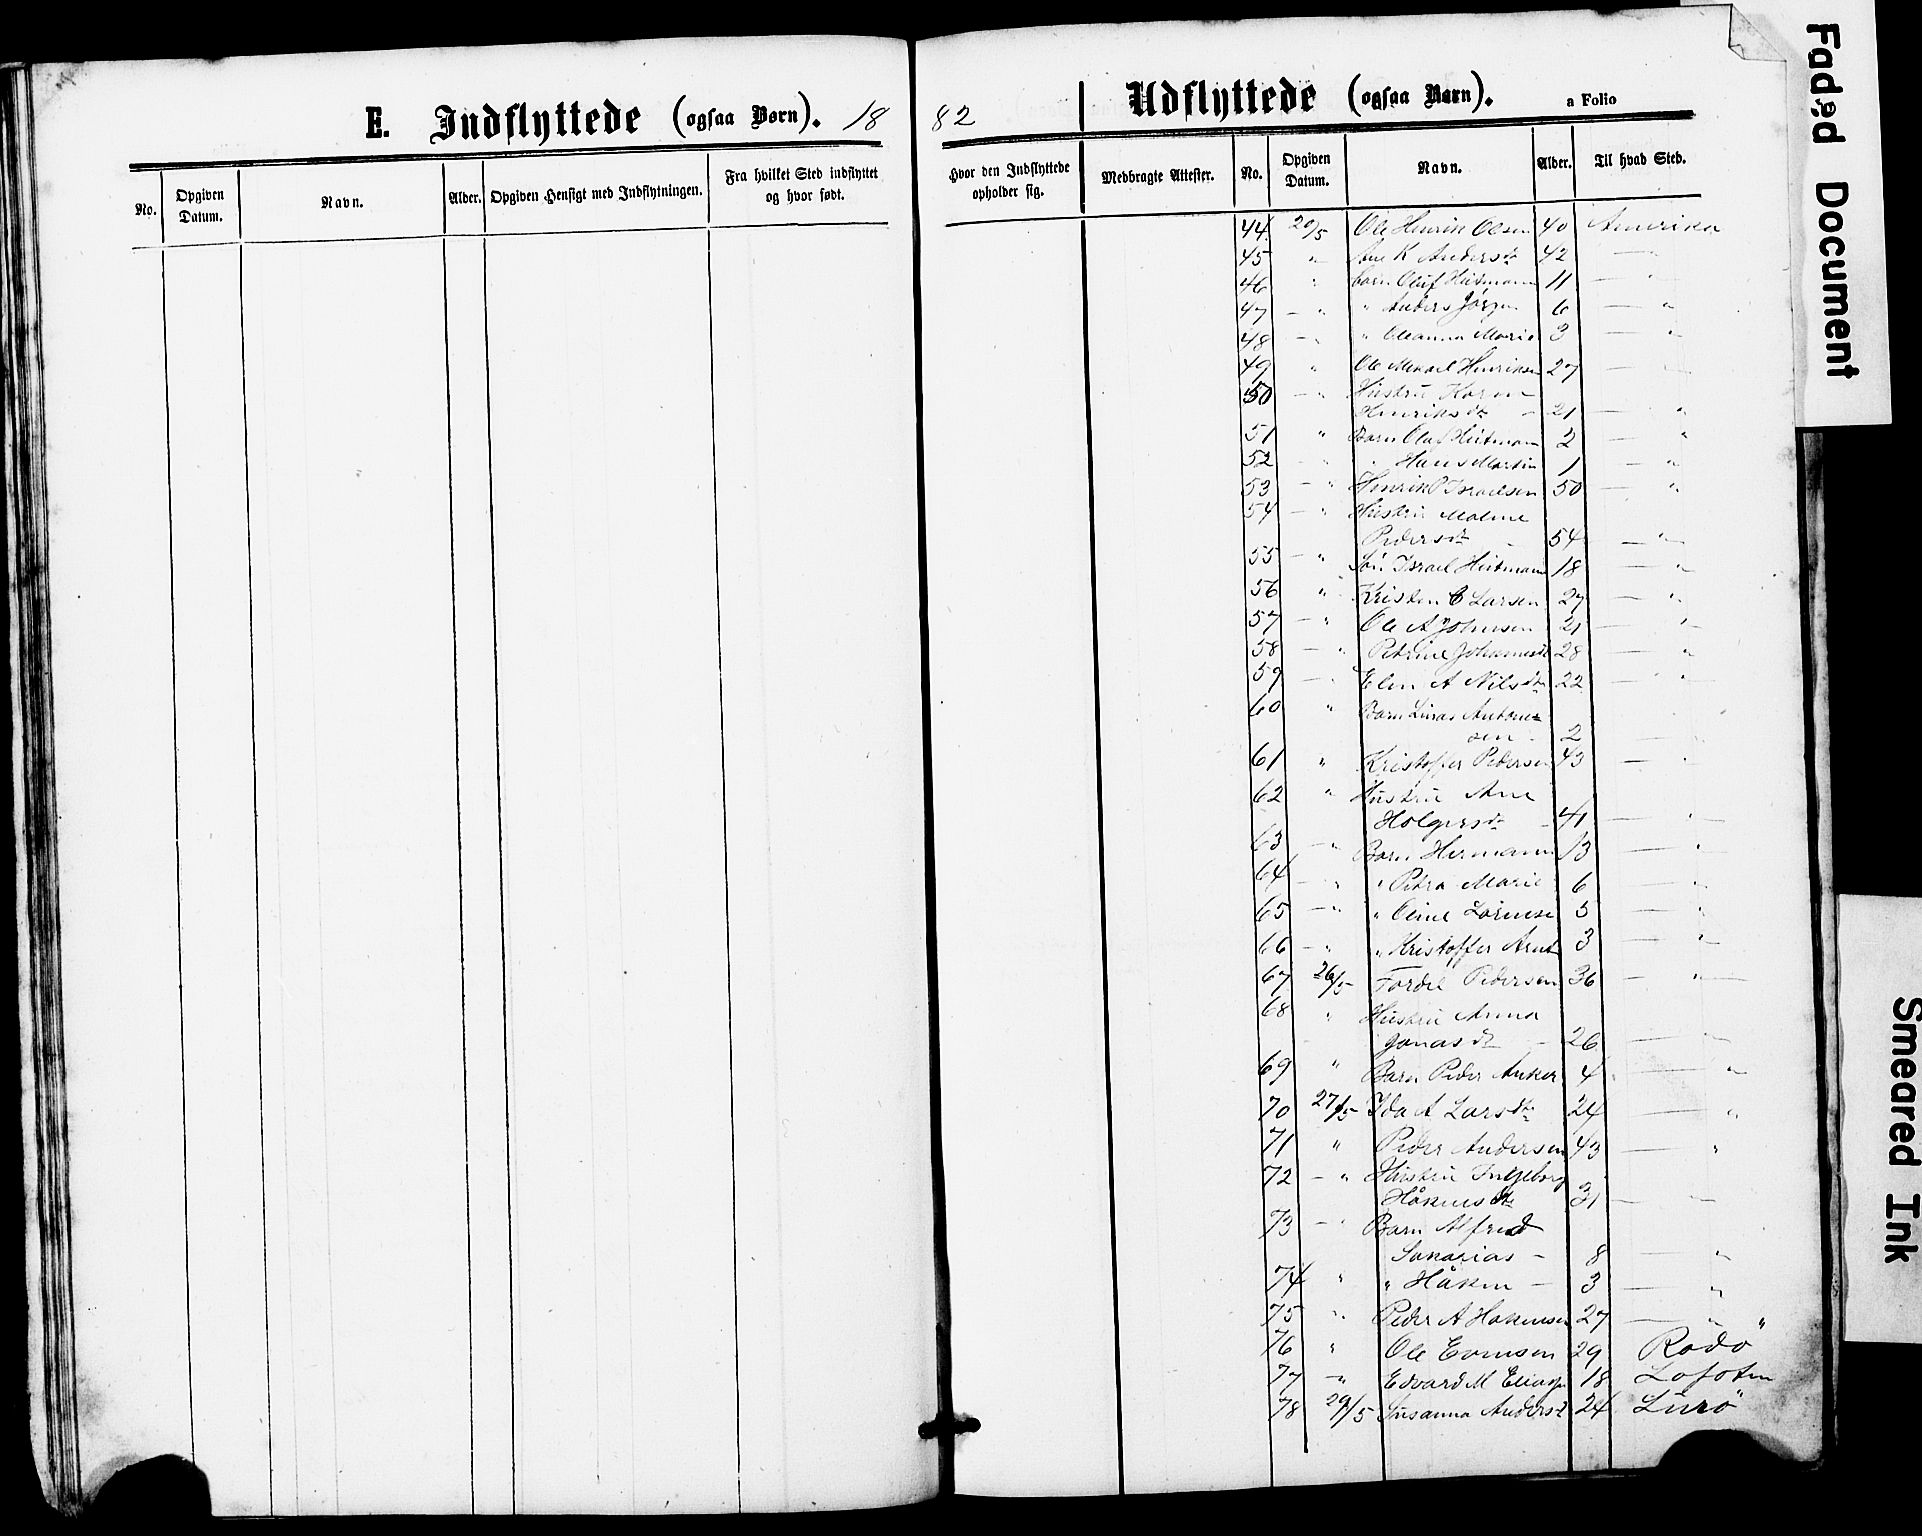 E. Indflyttede (ogsaa Børn). 18
No. Opgiven Datum. Navn. Alder. Opgiven Hensigt med Indflytningen. Fra hvilket Sted indflyttet og hvor født.
82 Udflyttede (ogsaa Børn). a Folio
Hvor den Indflyttede opholder sig. Medbragte Attester. No. Opgiven Datum. Navn. Alder. Til hvad Sted.
44. 20/5 Ole Henrik Olsen 40 Amerika
45 " Ane K Andersdr 42 — "
46 " barn Oluf Heitmann 11 — "
47 — " " Anders Jørgen 6 — "
48 — " " Oleanna Marie 3 — "
49 " Ole Mekael Henriksen 27 — "
50 — " Hustru Karen
Henriksdr — 21 — "
51 " Barn Olaf Heitmann 2 — "
52 — " " Hans Martin 1 — "
53 — " Henrik P Israelsen 50 — "
54 — " Hustru Maline
Pedersdr — 54 — "
55 — " Søn Israel Heitmann 18 — "
56 " Kristen C Larsen 27 — "
57 — " Ole A Johnsen 21 — "
58 — " Petrine Johannesdr 28 — "
59 — " Elen A Nilsdtr 22 — "
60 " Barn Antone-
sen — 2 — "
61 " Kristoffer Pedersen 43 — "
62 " Hustru Ane
Holgersdr — 41 — "
63 — " Barn Hermann 13 — "
64 — " " Petra Marie 6 — "
65 — " " Oline Lornse 5 — "
66 — " " Kristoffer Arnt 3 — "
67 26/5 Tordel Pedersen 36 — "
68 " Hustru Anna
Jonasdr — 26 — "
69 " Barn Peder Anker 4 — "
70 27/5 Ida A Larsdtr 24 — "
71 " Peder Andersen 43 — "
72 — " Hustru Ingeborg
Håkensdtr 31 — "
73 — " Barn Alfred
Sakarias — 8 — "
74 " " Håken — 3 — "
75 " Peder A Hakensen 27 — "
76 " Ole Evensen 29 Rødø
77 — " Edvard M Eliasen 18 Lofoten
78 29/5 Susanna Andersd 24 Lurø
Faded Document
Smeared Ink